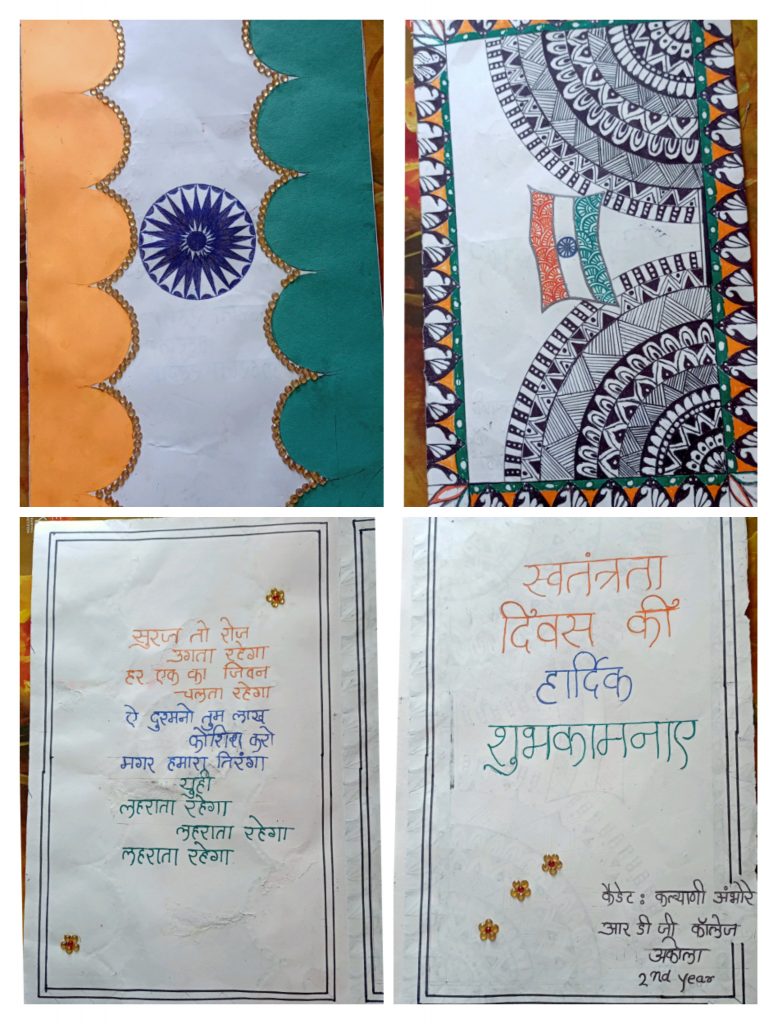 सुरज तो रोज़
उगता रहेगा
हर एक का जिवन
चलता रहेगा
ऐ दुश्मनो तुम लाख
कोशिश करो
मगर हमारा तिरंगा
युही
लहराता रहेगा
लहराता रहेगा
लहराता रहेगा
स्वतंत्रता
दिवस कीं
हार्दिक
शुभकामनाए
कैडेट : कल्याणी अंभोरे
आर डी जी कॉलेज
अकोला
2nd year